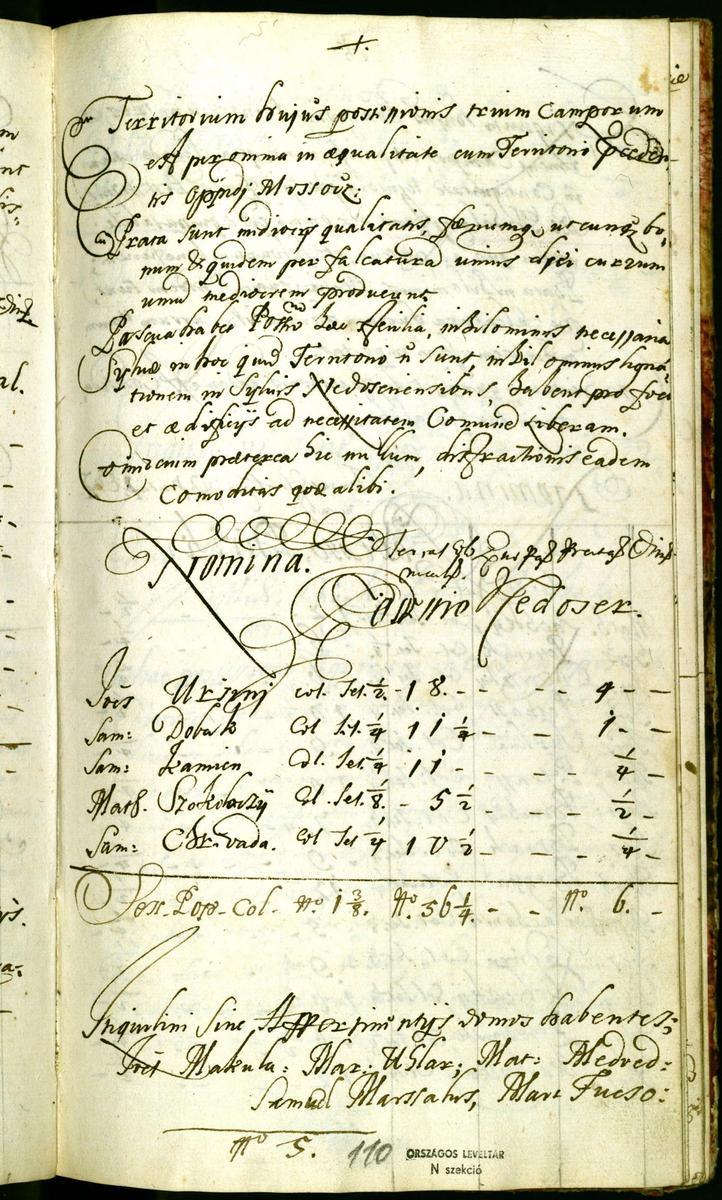 +.
Territorium hujus possessionis trium Camporum
est per omnia in æqualitate cum Territorio Præceden-
tis Oppidi Mossovz:
Prata sunt mediocris qualitatis, fænumq, utcunq, bo-
num & quidem per falcaturã unius diei currum
unũ mediocrem producunt.
Pascua habet hæc sterilia, nihilominus necessaria
Sylvæ in hoc quid Territorio ñ sunt, nihilominus ligna-
tionem in Sylvis Nedoseriensibus, habent pro foco
et ædificijs ad necessitatem Comunẽ Liberam.
omnium præterea hic nullum, distractionis eadem
Comoditas quæ alibi.
Nomina.
Possessio Nedoser.
Joes Ursinj Col. Set. 1/2. - 18. - - - - 4 - -
Sam: Dobak Col Set. 1/4 11 1/4 - - - 1. -
Sam: Kamien Col. Set. 1/4 11 - - - 1/4 -
Math. Szokolaczÿ Col. Set. 1/8. - 5 1/2 - - - 1/2 -
Sam: Chrvada. Col Set 1/4 10 1/2 - - - 1/4 -
Col. No. 1 3/8. No. 56 1/4. - - No. 6. -
Inquilini Sine Appertinentijs domos habentes;
Joes Makula: Mar: Uhlar; Mat: Medved:
Samuel Marssalus, Mart Fueso:
No 5.
110
ORSZÁGOS LEVÉLTÁR
N szekció